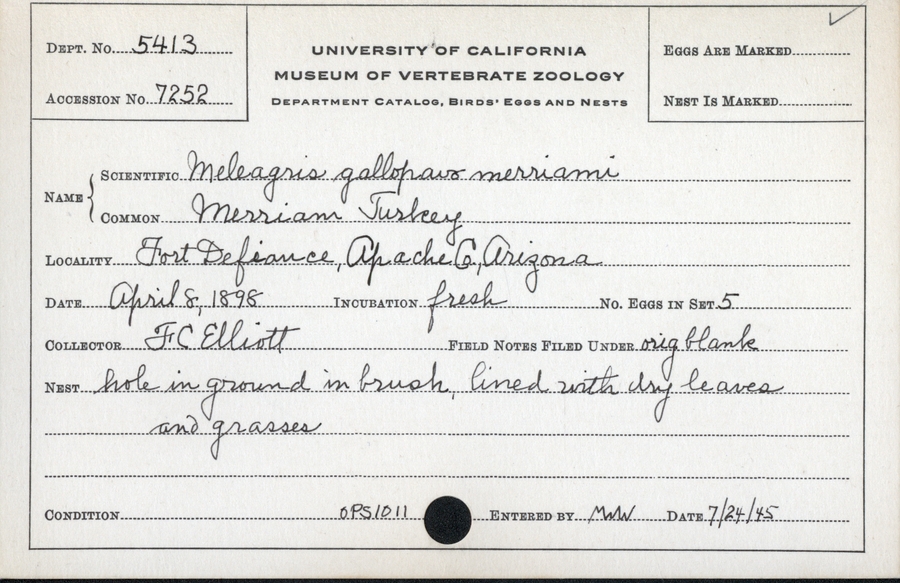 DEPT. NO. 5413
ACCESSION NO. 7252
UNIVERSITY OF CALIFORNIA
MUSEUM OF VERTEBRATE ZOOLOGY
DEPARTMENT CATALOG, BIRDS' EGGS AND NESTS
EGGS ARE MARKED
NEST IS MARKED
NAME
SCIENTIFIC Meleagris gallopavo merriami
COMMON Merriam Turkey
LOCALITY Fort Defiance, Apache Co, Arizona
DATE April 8, 1898 INCUBATION fresh NO. EGGS IN SET 5
COLLECTOR F C Elliott FIELD NOTES FILED UNDER orig blank
NEST hole in ground in brush, lined with dry leaves
and grasses
CONDITION OPS1011 ENTERED BY MWW DATE 7/24/45